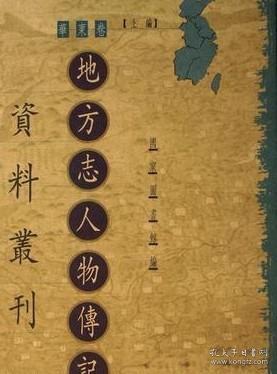 華東卷【上編】
地方志人物傳記
資料叢刊
國家圖書館編
孔夫子旧书网
www.kongfz.com